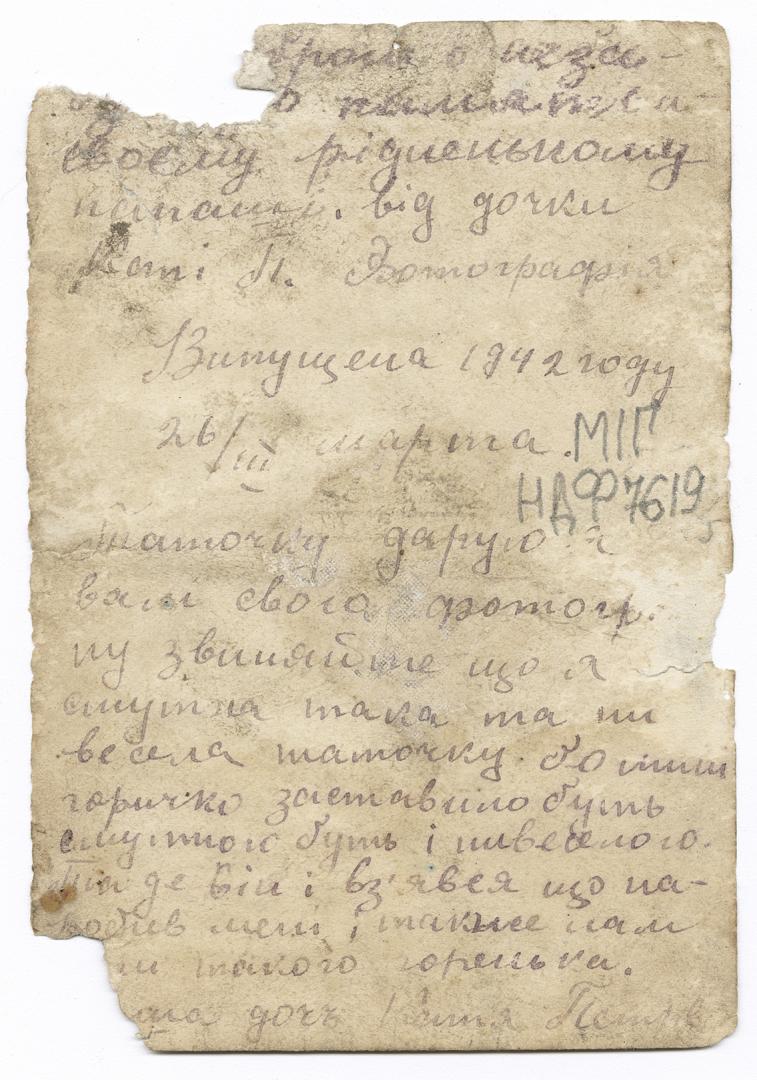 своєму рідненькому
папаші. від дочки
Каті П. Фотографія
Випущена 1942 году
26/III марта.
МІГ
НДФ 7619
5
Таточку дарую я
вам свого фотогр.
ну звиняйте що я
смутна така та ни
весела таточку. бо
горичко заставило буть
смутною буть і нивеселою.
де він і взявся що на-
робив мені і
такого горенька.
дочь Катя Петрів